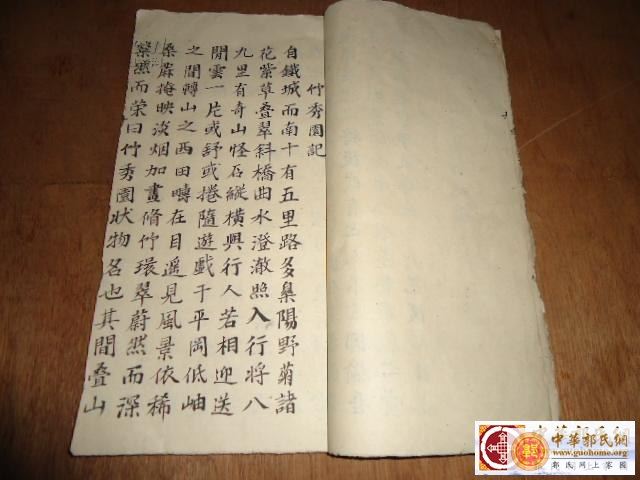 竹秀園記
自鐵城而南十有五里路多臬陽野菊諸
花紫草叠翠斜橋曲水澄澈照入行將八
九里有奇山怪石縱横興行人若相迎送
閒雲一片或舒或捲隨遊戲于平岡低岫
之間轉山之西田疇在目遥見風景依稀
桑掩映淡烟加畫脩竹環翠蔚然而深
而荣曰竹秀園状物名也其間叠山
中華郭氏網
www.guohome.org
郭氏网上家園